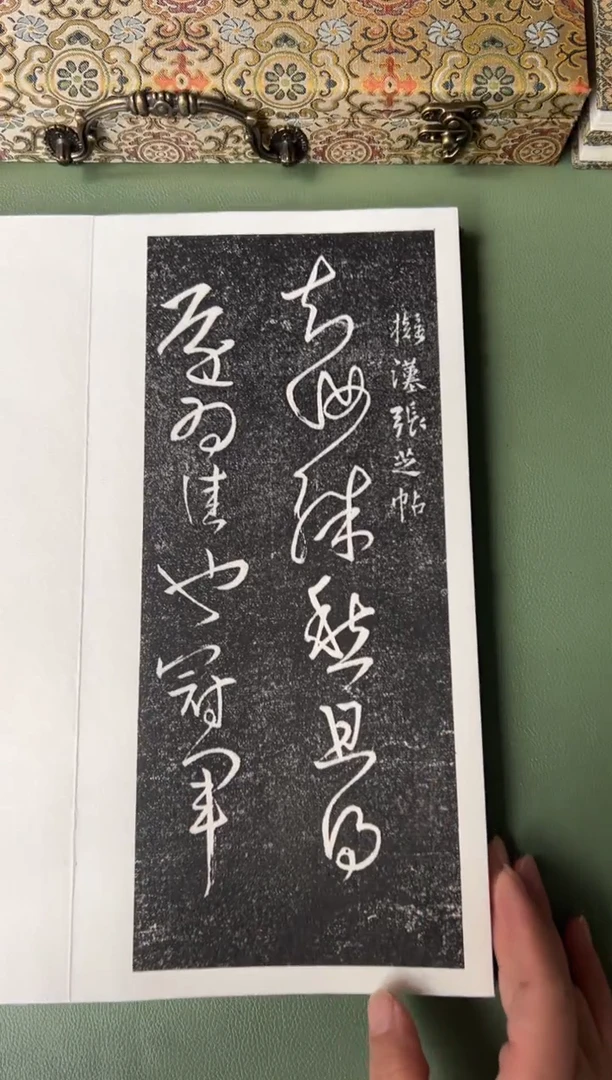 擬漢張芝帖
知汝殊愁且得
還為佳也冠軍